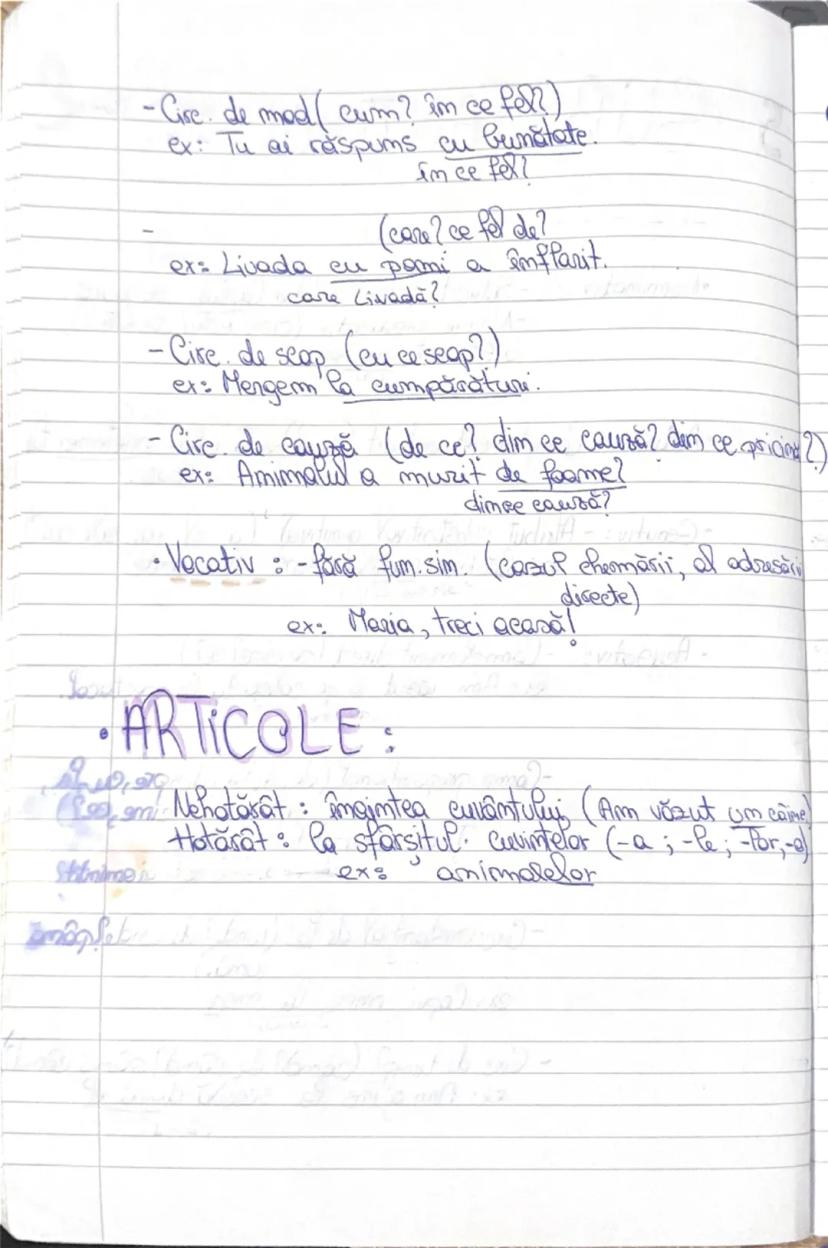 - Circ. de mod ( cum? în ce fel? )
ex: Tu ai răspuns cu bunătate.
în ce fel?
- (care? ce fel de?
ex: Livada cu pomi a înflorit.
care Livadă?
- Circ. de scop (cu ce scop?)
ex: Mergem la cumpărături.
- Circ. de cauză (de ce? din ce cauză? din ce pricină?)
ex: Animalul a murit de foame?
din ce cauză?
• Vocativ : - fără fun. sin. (cazul chemării, al adresării
directe)
ex: Maria, treci acasă!
• ARTICOLE :
Nehotărât : înaintea cuvântului (Am văzut un câine)
Hotărât : la sfârșitul cuvintelor (-a ; -le ; -lor, -a)
ex: animalelor